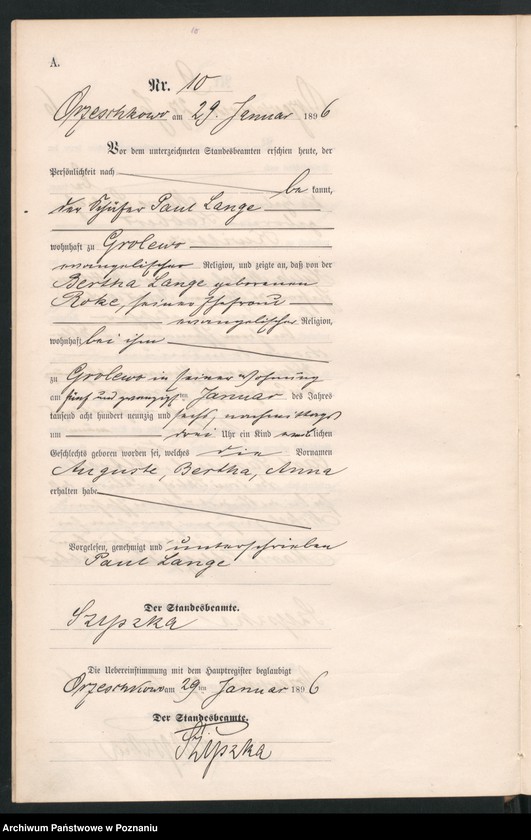 A.
Nr. 10
Orzeschkowo am 29. Januar 1896
Vor dem unterzeichneten Standesbeamten erschien heute, der
Persönlichkeit nach
bekannt,
der Schäfer Paul Lange
wohnhaft zu Grolewo
evangelischer Religion, und zeigte an, daß von der
Bertha Lange geborenen
seiner Ehefrau
evangelischer Religion,
wohnhaft bei ihm
zu Grolewo in seiner Wohnung
am fünf und zwanzigsten Januar des Jahres
tausend acht hundert neunzig und sechs, nachmittags
um drei Uhr ein Kind lichen
Geschlechts geboren worden sei, welches die Vornamen
Auguste, Bertha, Anna
erhalten habe
Vorgelesen, genehmigt und unterschrieben
Paul Lange
Der Standesbeamte.
Szypzka
Die Uebereinstimmung mit dem Hauptregister beglaubigt
Orzeschkowo am 29ten Januar 1896
Der Standesbeamte.
Szypzka
Archiwum Państwowe w Poznaniu